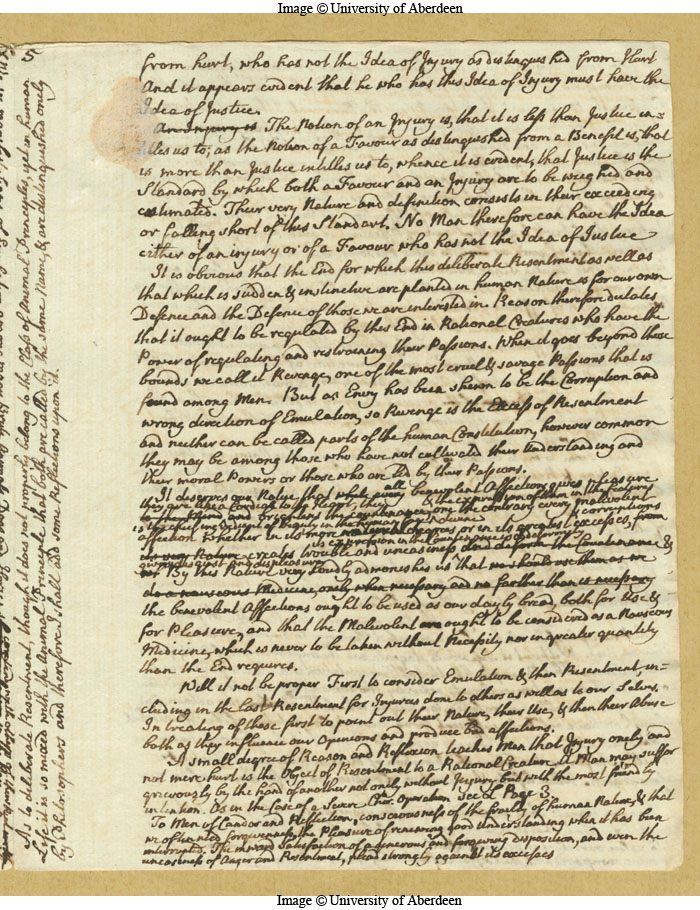 Image © University of Aberdeen
5
from hurt, who has not the Idea of Injury as distinguished from Hurt
And it appears evident that he who has this Idea of Injury must have the
Idea of Justice.
An injury is The Notion of an Injury is, that it is less than Justice in=
titles us to; as the Notion of a Favour as distinguished from a Benefit is, that
is more than Justice intitles us to, whence it is evident, that Justice is the
Standard by which both a Favour and an Injury are to be weighed and
estimated. Their very Nature and definition consists in their exceeding
or falling short of this Standart. No Man therefore can have the Idea
either of an injury or of a Favour who has not the Idea of Justice
It is obvious that the End for which this deliberate Resentment as well as
that which is sudden & instinctive are planted in human Nature is for our own
Defence and the Defence of those we are interested in Reason therefore dictates
that it ought to be regulated by this End in Rational Creatures who have the
Power of regulating and restraining their Passions. When it goes beyond these
bounds we call it Revenge, one of the most cruel & savage Passions that is
found among Men. But as Envy has been shewn to be the Corruption and
wrong direction of Emulation, so Revenge is the Excess of Resentment
and neither can be called parts of the human Constitution, however common
they may be among those who have not cultivated their Understanding and
their moral Powers or those who are led by their Passions.
It deserves our Notice that while every all benevolent Affections gives pleasure
they give like a Cordial to the Heart, they & the expression of them in the features
the countenance, on the contrary every malevolent
affection whether in its more degrees or in its greatest excesses, & corruptions from
its very Nature creates trouble and uneasiness and deform the Countenance &
disgust and displeasure
By this Nature very loudly admonishes us that we should use them as we
do a nauseous Medicine, only when necessary and no farther than is necessary
the benevolent Affections ought to be used as our dayly bread, both for Use &
for Pleasure, and that the Malevolent ought to be considered as a Nauseous
Medicine, which is never to be taken without Necessity nor in greater quantity
than the End requires.
Will it not be proper First to consider Emulation & then Resentment, in=
cluding in the last Resentment for Injures done to others as well as to our Selves.
In treating of these first to point out their Nature, their Use, & then their Abuse
both as they influence our Opinions and produce bad affections.
A small degree of Reason and Reflexion teaches Men that Injury only and
not mere hurt is the Object of Resentment to a Rational Creature A Man may suffer
grievously by the hand of another not only without Injury but with the most friendly
intention. As in the Case of a Severe Operation See Page 3
To Men of Candor and Reflection, consciousness of the frailty of human Nature, & that
we often need forgiveness, the Pleasure of renewing good Understanding when it has been
interrupted. The inward Satisfaction of a generous and forgiving disposition, and even the
uneasiness of Anger and Resentment, plead strongly against its excesses
As to deliberate Resentment, though it does not properly belong to the Class of Animal Principles, yet in human
Life it is so mixed with the Animal Principle that both are called by the same Name, & are distinguished only
by Philosophers and therefore I shall add some Reflections upon it.
Image © University of Aberdeen